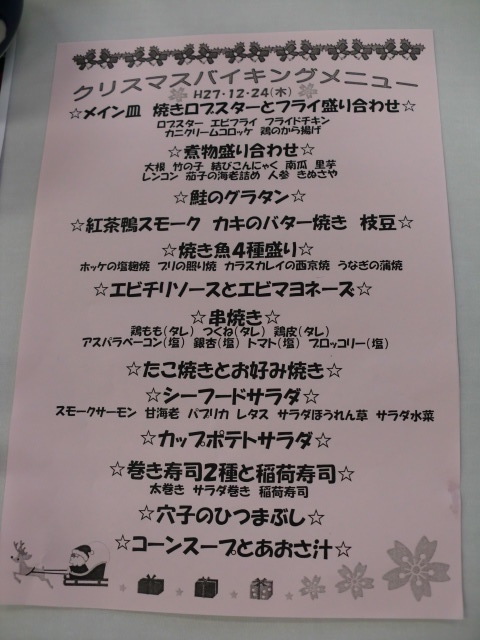 クリスマスバイキングメニュー
H27・12・24(木)
☆メイン皿 焼きロブスターとフライ盛り合わせ☆
ロブスター エビフライ フライドチキン
カニクリームコロッケ 鶏のから揚げ
☆煮物盛り合わせ☆
大根 竹の子 結びこんにゃく 南瓜 里芋
レンコン 茄子の海老詰め 人参 きぬさや
☆鮭のグラタン☆
☆紅茶鴨スモーク カキのバター焼き 枝豆☆
☆焼き魚4種盛り☆
ホッケの塩麹焼 ブリの照り焼 カラスカレイの西京焼 うなぎの蒲焼
☆エビチリソースとエビマヨネーズ☆
☆串焼き☆
鶏もも(タレ) つくね(タレ) 鶏皮(タレ)
アスパラベーコン(塩) 銀杏(塩) トマト(塩) ブロッコリー(塩)
☆たこ焼きとお好み焼き☆
☆シーフードサラダ☆
スモークサーモン 甘海老 パプリカ レタス サラダほうれん草 サラダ水菜
☆カップポテトサラダ☆
☆巻き寿司2種と稲荷寿司☆
太巻き サラダ巻き 稲荷寿司
☆穴子のひつまぶし☆
☆コーンスープとあおさ汁☆